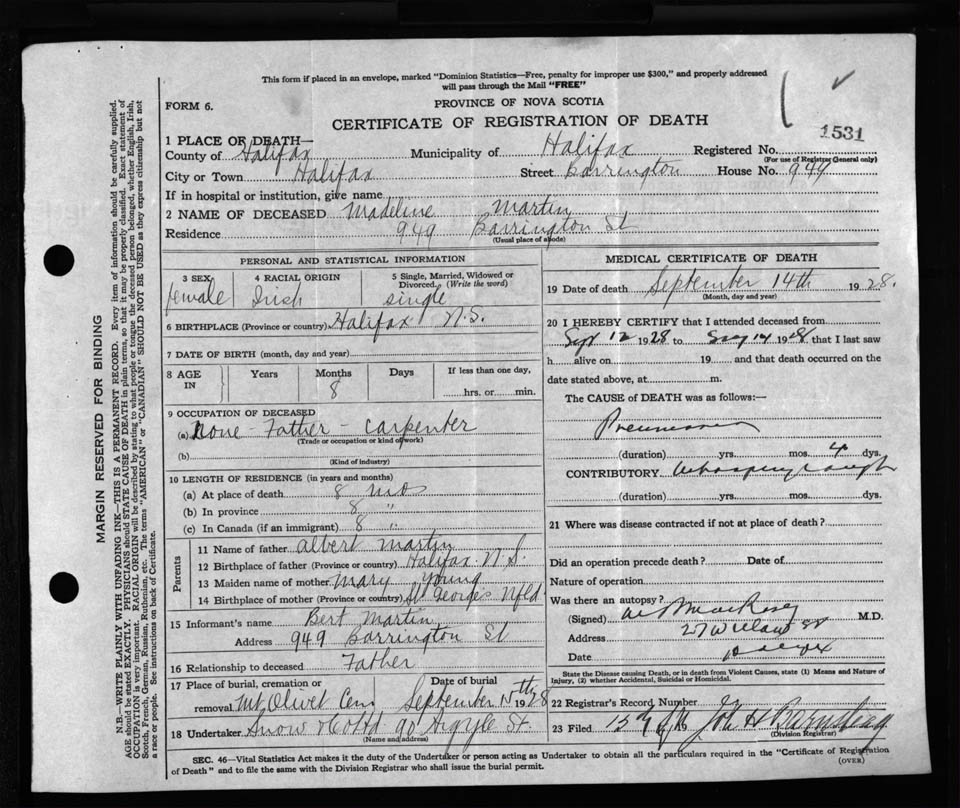 This form if placed in an envelope, marked "Dominion Statistics—Free, penalty for improper use $300," and properly addressed
will pass through the Mail "FREE"
FORM 6.
PROVINCE OF NOVA SCOTIA
CERTIFICATE OF REGISTRATION OF DEATH
1531
1 PLACE OF DEATH—
County of Halifax Municipality of Halifax Registered No.
(For use of Registrar General only)
City or Town Halifax Street Barrington House No. 949
If in hospital or institution, give name
2 NAME OF DECEASED Madeline Martin
Residence 949 Barrington St
(Usual place of abode)
PERSONAL AND STATISTICAL INFORMATION
3 SEX female
4 RACIAL ORIGIN Irish
5 Single, Married, Widowed or Divorced. (Write the word) single
6 BIRTHPLACE (Province or country) Halifax N.S.
7 DATE OF BIRTH (month, day and year)
8 AGE IN Years Months 8 Days If less than one day, hrs. or min.
9 OCCUPATION OF DECEASED
(a) None - Father - Carpenter
(Trade or occupation or kind of work)
(b)
(Kind of industry)
10 LENGTH OF RESIDENCE (in years and months)
(a) At place of death 8 mos
(b) In province 8 "
(c) In Canada (if an immigrant) 8 "
Parents
11 Name of father Albert Martin
12 Birthplace of father (Province or country) Halifax N.S.
13 Maiden name of mother Mary Young
14 Birthplace of mother (Province or country) St Georges Nfld
15 Informant's name Bert Martin
Address 949 Barrington St
16 Relationship to deceased Father
17 Place of burial, cremation or removal Mt Olivet Cem Date of burial September 15th 28
18 Undertaker Snow & Co Ltd 90 Argyle St.
(Name and address)
MEDICAL CERTIFICATE OF DEATH
19 Date of death September 14th 1928.
(Month, day and year)
20 I HEREBY CERTIFY that I attended deceased from
Sept 12 1928 to Sep 14 1928 that I last saw
h alive on 19 and that death occurred on
date stated above, at m.
The CAUSE of DEATH was as follows:—
Pneumonia
(duration) yrs. mos. 4 dys.
CONTRIBUTORY Whooping Cough
(duration) yrs. mos. dys.
21 Where was disease contracted if not at place of death?
Did an operation precede death? Date of
Nature of operation
Was there an autopsy?
(Signed) M.D.
Address 27 Willow St
Date Halifax
State the Disease causing Death, or in death from Violent Causes, state (1) Means and Nature of
Injury, (2) whether Accidental, Suicidal or Homicidal.
22 Registrar's Record Number
23 Filed 15 John H
(Division Registrar)
SEC. 46—Vital Statistics Act makes it the duty of the Undertaker or person acting as Undertaker to obtain all the particulars required in the "Certificate of Registration
of Death" and to file the same with the Division Registrar who shall issue the burial permit.
(OVER)
MARGIN RESERVED FOR BINDING
N.B.—WRITE PLAINLY WITH UNFADING INK—THIS IS A PERMANENT RECORD. Every item of information should be carefully supplied.
AGE should be stated EXACTLY. PHYSICIANS should STATE CAUSE OF DEATH in plain terms, so that it may be properly classified. Exact statement of
OCCUPATION is very important. RACIAL ORIGIN will be described by stating to what people or tongue the deceased person belonged, whether English, Irish,
Scotch, French, German, Russian, Ruthenian, etc. The terms "AMERICAN" or "CANADIAN" SHOULD NOT BE USED as they express citizenship but not
a race or people. See instructions on back of Certificate.